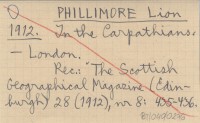 PHILLIMORE Lion
1912. In the Carpathians.
— London.
Rec.: "The Scottish
Geographical Magazine (Edin-
burgh) 28 (1912), nr 8: 435-436.